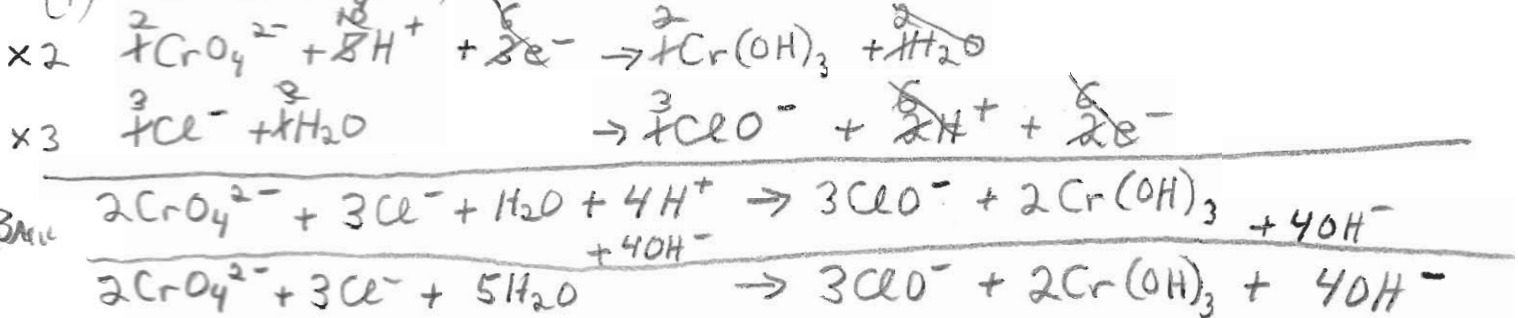 ×2 2CrO₄²⁻ + 10H⁺ + 6e⁻ → 2Cr(OH)₃ + 2H₂O
×3 3Cl⁻ + 3H₂O → 3ClO⁻ + 6H⁺ + 6e⁻
2CrO₄²⁻ + 3Cl⁻ + H₂O + 4H⁺ → 3ClO⁻ + 2Cr(OH)₃
+ 4OH⁻ + 4OH⁻
2CrO₄²⁻ + 3Cl⁻ + 5H₂O → 3ClO⁻ + 2Cr(OH)₃ + 4OH⁻